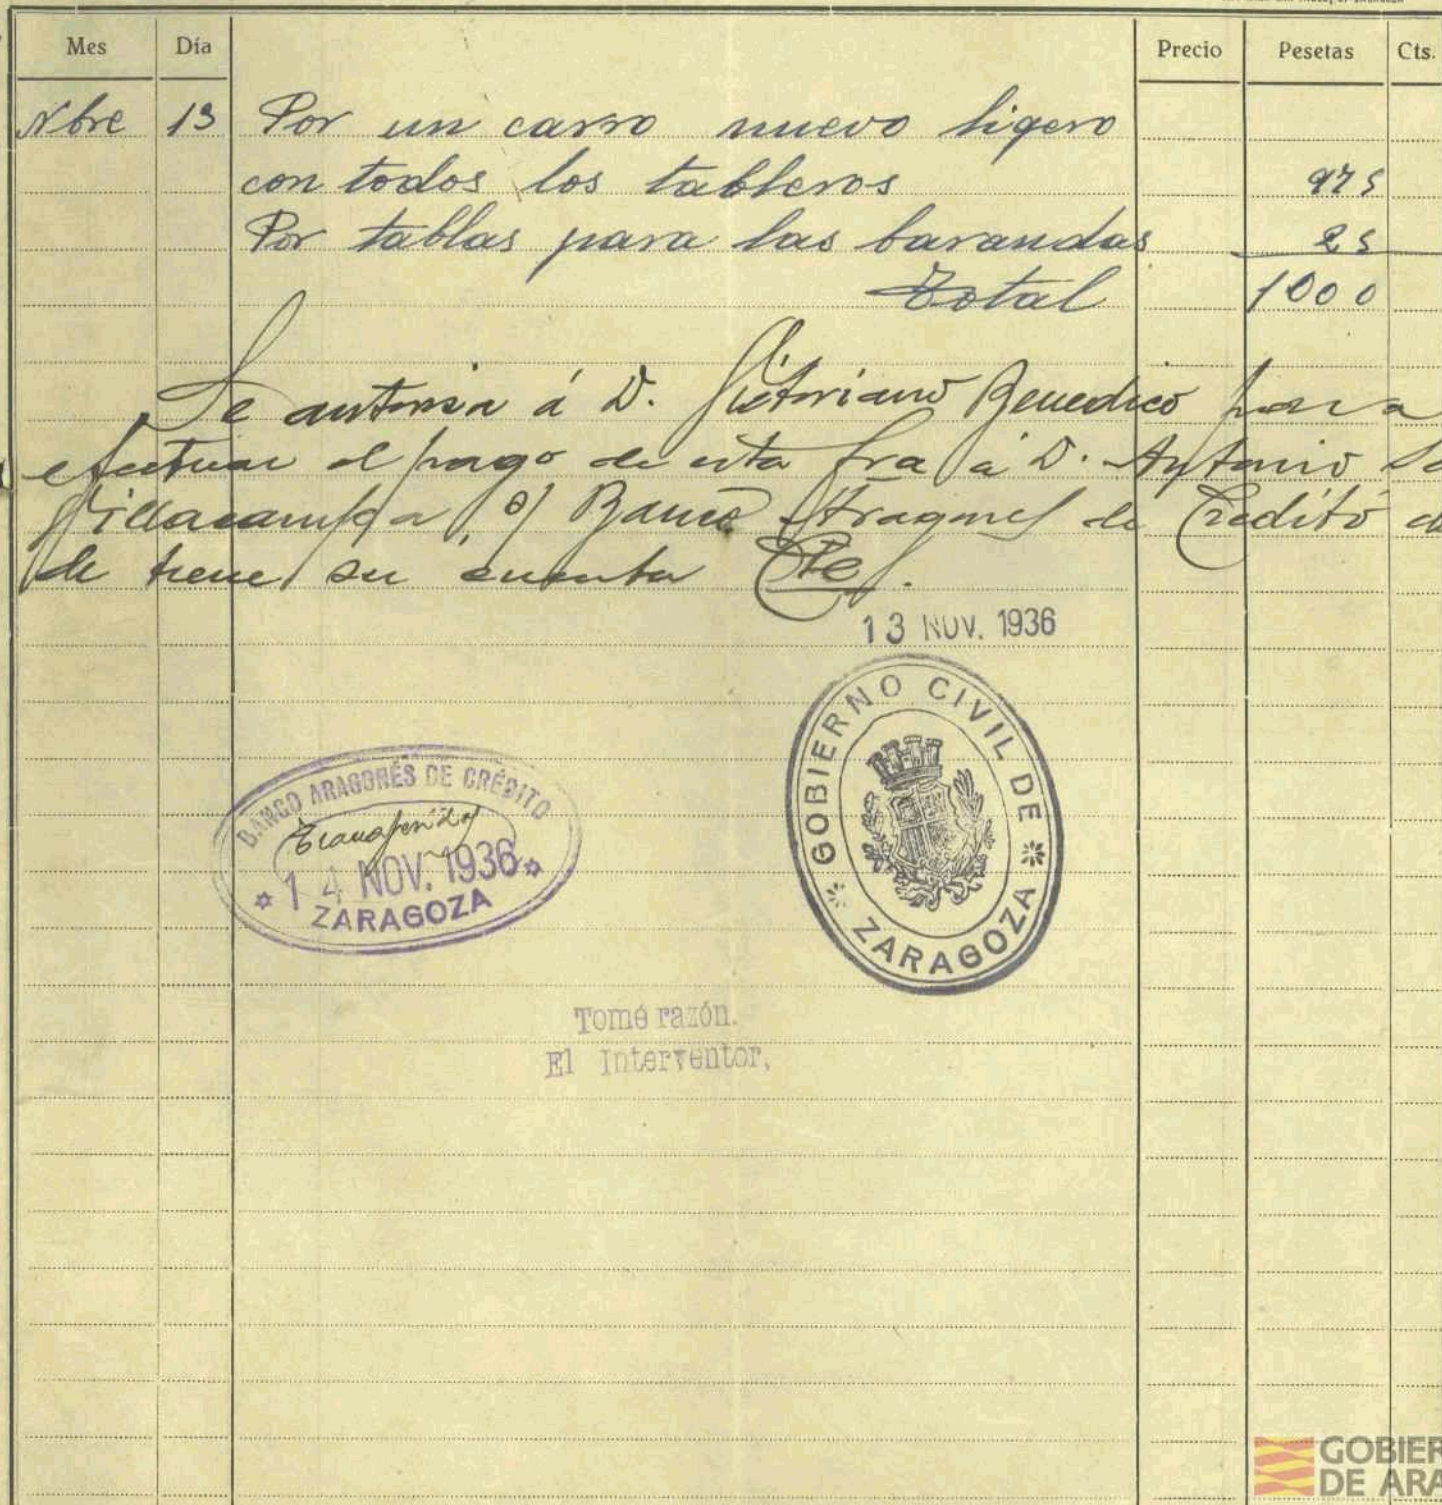 Mes Día Precio Pesetas Cts.
Nbre 13 Por un carro nuevo ligero
con todos los tableros 975
Por tablas para las barandas 25
Total 1000
Se autoriza á D. Victoriano Benedico para
efectuar el pago de esta fra á D. Antonio
Villacampa, Banco Aragones de Credito
de tiene su cuenta Cte.
13 NOV. 1936
GOBIERNO CIVIL DE
ZARAGOZA
BANCO ARAGONÉS DE CRÉDITO
Transferido
14 NOV. 1936
ZARAGOZA
Tomé razón.
El Interventor,
GOBIER
DE ARA